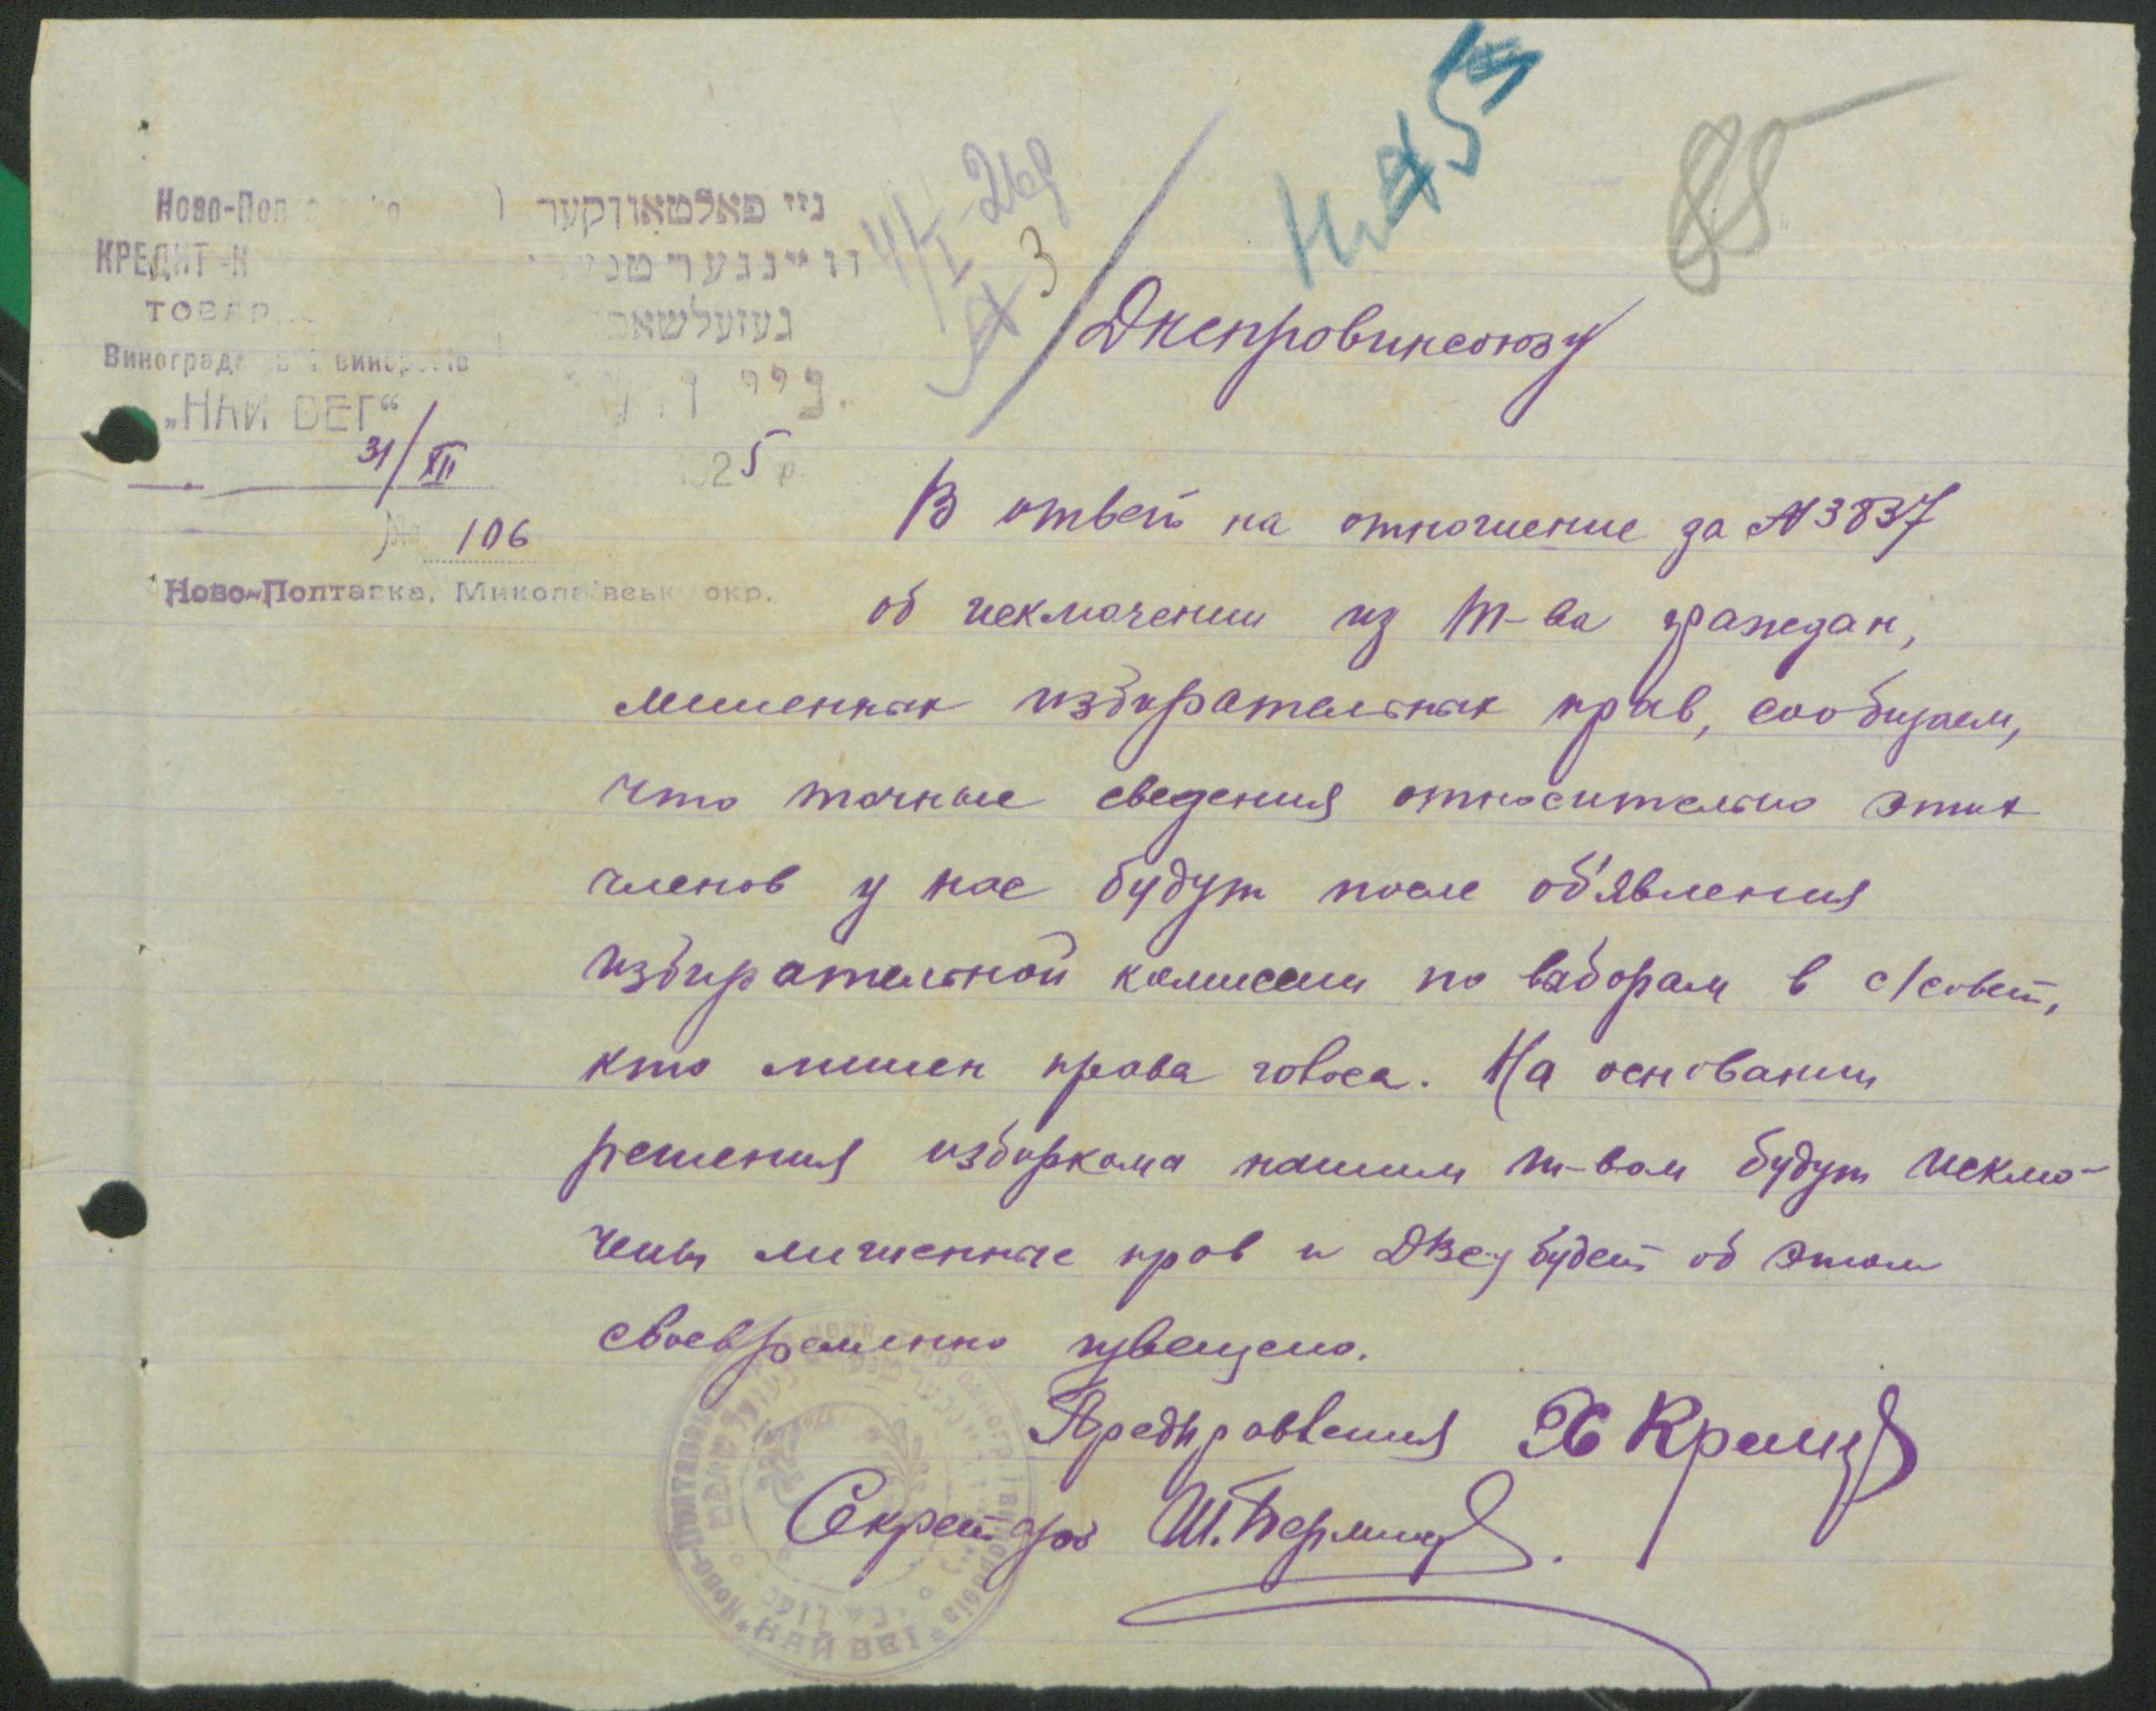 Ново-Пол
КРЕДИТ-К
ТОВАР
Виноград винар
„НАЙ ВЕГ“
31/XII 25 р.
№ 106
Ново-Полтавка, Миколаївськ окр.
נײ פאלטאװקער
װײנגערטנ
געזעלשאפ
נײ
4/I-26 д
3
85
Днепровинсоюзу
В ответ на отношение за №3837
об исключении из т-ва граждан,
лишенных избирательных прав, сообщаем,
что точные сведения относительно этих
членов у нас будут после об'явления
избирательной комиссии по выборам в с/совет,
кто лишен права голоса. На основании
решения избиркома нашим т-вом будут исклю-
чены лишенные прав и ДВС будет об этом
своевременно извещено.
Предправления Х
Секретарь Ш.
Ново-Полтавськ
НАЙ ВЕГ